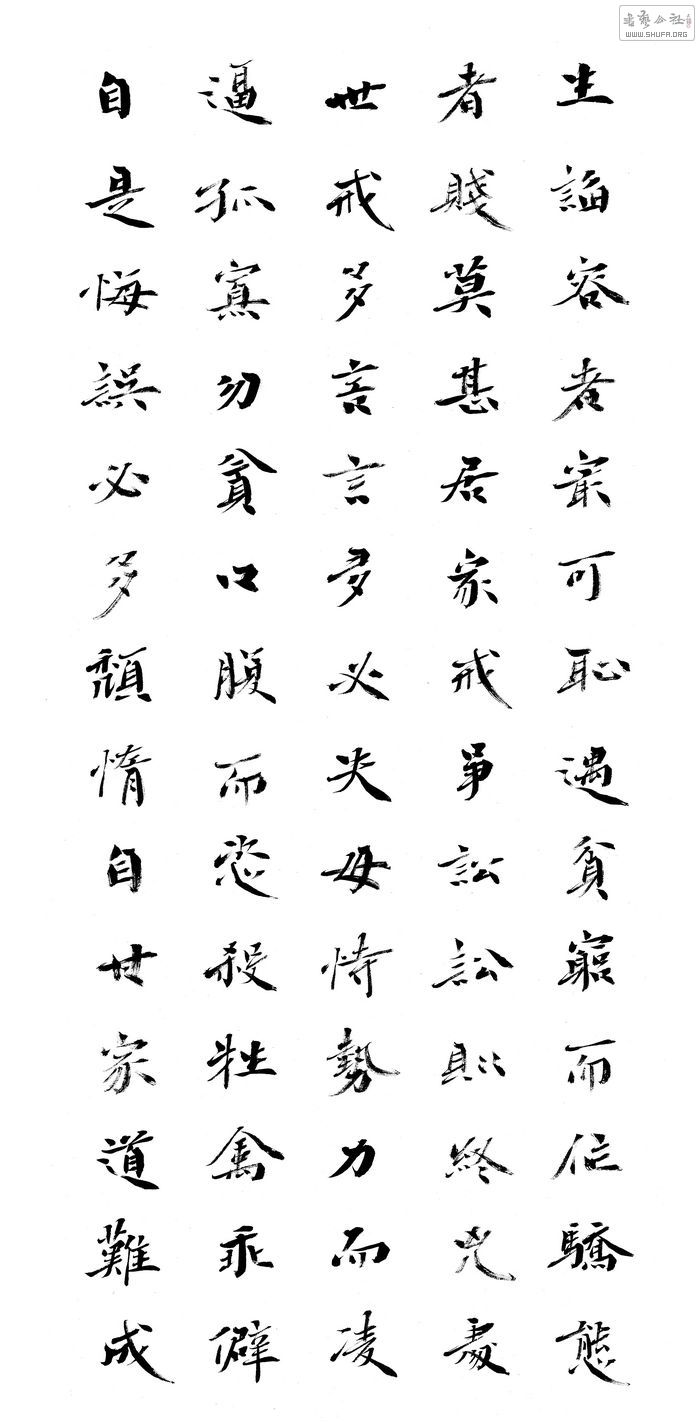 書藝公社
WWW.SHUFA.ORG
生諂容者最可恥遇貧窮而作驕態
者賤莫甚居家戒爭訟訟則終凶處
世戒多言言多必失毋恃勢力而凌
逼孤寡勿貪口腹而恣殺牲禽乖僻
自是悔誤必多頹惰自甘家道難成